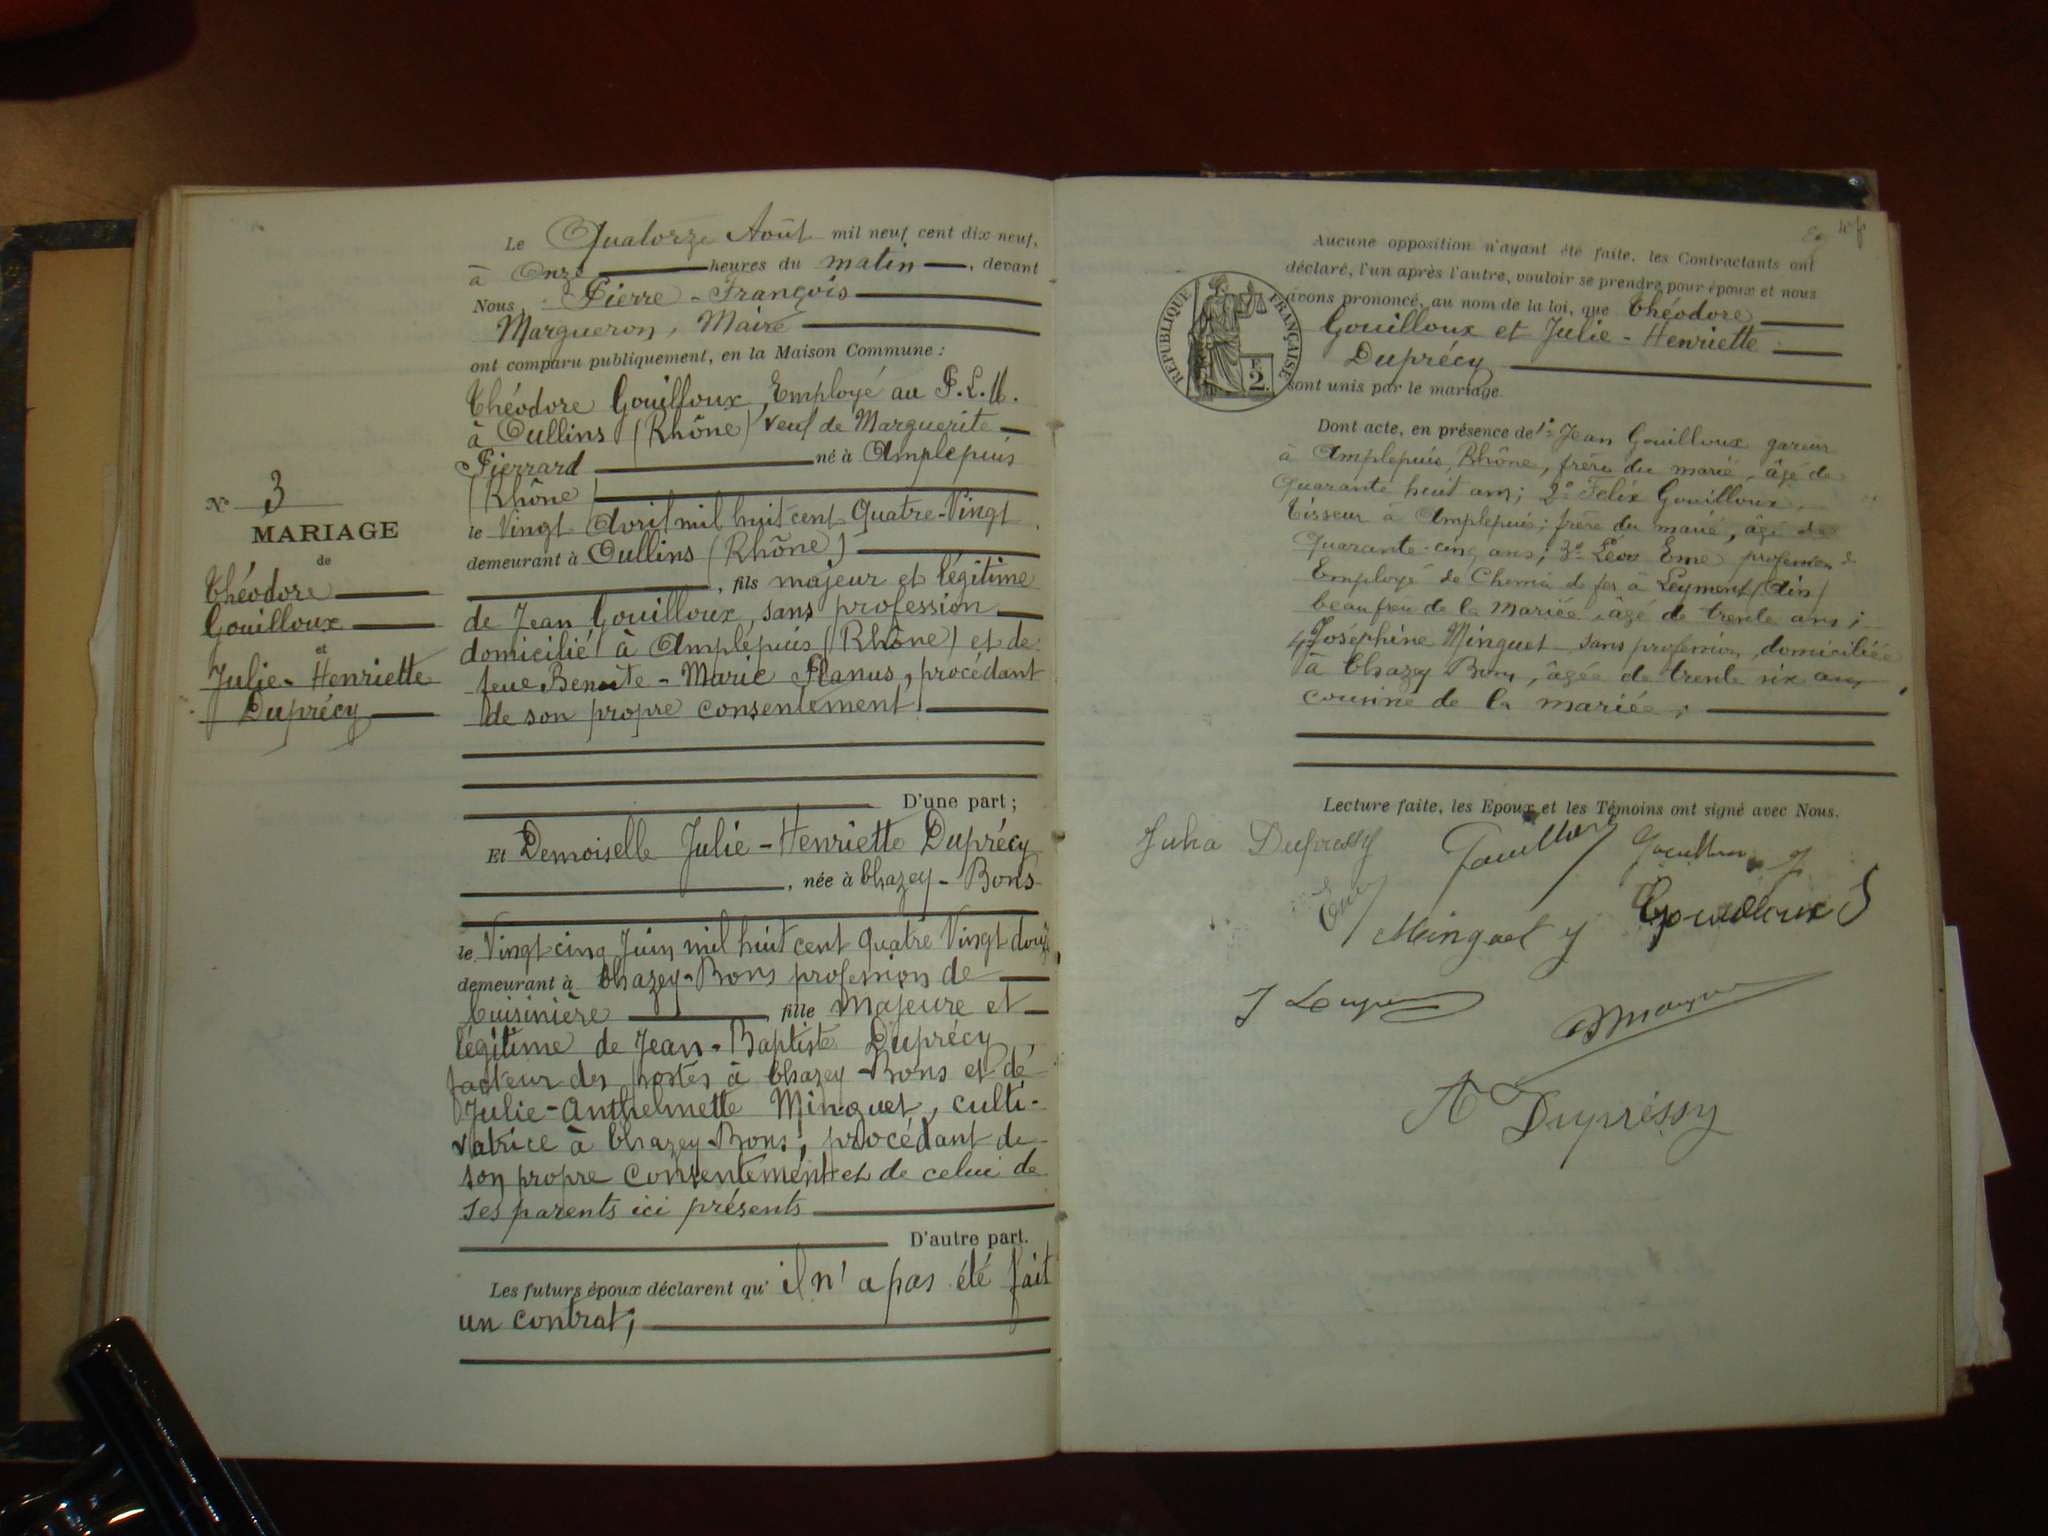 N° 3
MARIAGE
de
Théodore
Gouilloux
et
Julie-Henriette
Duprécy
Le Quatorze Août mil neuf cent dix neuf,
à Onze heures du matin, devant
Nous, Pierre-François
Margueron, Maire
ont comparu publiquement, en la Maison Commune :
Théodore Gouilloux, Employé au P.L.M.
à Oullins (Rhône) veuf de Marguerite
Pierrard né à Amplepuis
(Rhône)
le Vingt Avril mil huit cent Quatre-Vingt
demeurant à Oullins (Rhône)
, fils majeur et légitime
de Jean Gouilloux, sans profession
domicilié à Amplepuis (Rhône) et de
feue Benoite-Marie Planus, procédant
de son propre consentement
D'une part ;
Et Demoiselle Julie-Henriette Duprécy
, née à Chazey-Bons
le Vingt cinq Juin mil huit cent quatre Vingt douze
demeurant à Chazey-Bons profession de
Cuisinière fille majeure et
légitime de Jean-Baptiste Duprécy
facteur des postes à Chazey-Bons et de
Julie-Anthelmette Minguet, culti-
vatrice à Chazey-Bons, procédant de
son propre consentement et de celui de
ses parents ici présents
D'autre part.
Les futurs époux déclarent qu' il n'a pas été fait
un contrat;
Aucune opposition n'ayant été faite, les Contractants ont
déclaré, l'un après l'autre, vouloir se prendre pour époux et nous
avons prononcé, au nom de la loi, que Théodore
Gouilloux et Julie-Henriette
Duprécy
sont unis par le mariage.
RÉPUBLIQUE FRANÇAISE
2
Dont acte, en présence de 1° Jean Gouilloux gareur
à Amplepuis, Rhône, frère du marié, âgé de
Quarante huit ans; 2° Felix Gouilloux,
Tisseur à Amplepuis; frère du marié, âgé de
Quarante-cinq ans; 3° Léon Eme profession d
Employé de Chemin de fer à Leyment (Ain)
beau frère de la Mariée, âgé de trente ans;
4° Joséphine Minguet sans profession domiciliée
à Chazey Bons, âgée de trente six ans
cousine de la mariée;
Lecture faite, les Epoux et les Témoins ont signé avec Nous.
Julia Dupressy Gouilloux Gouilloux J
Eme Minguet J Gouilloux
A Dupréssy